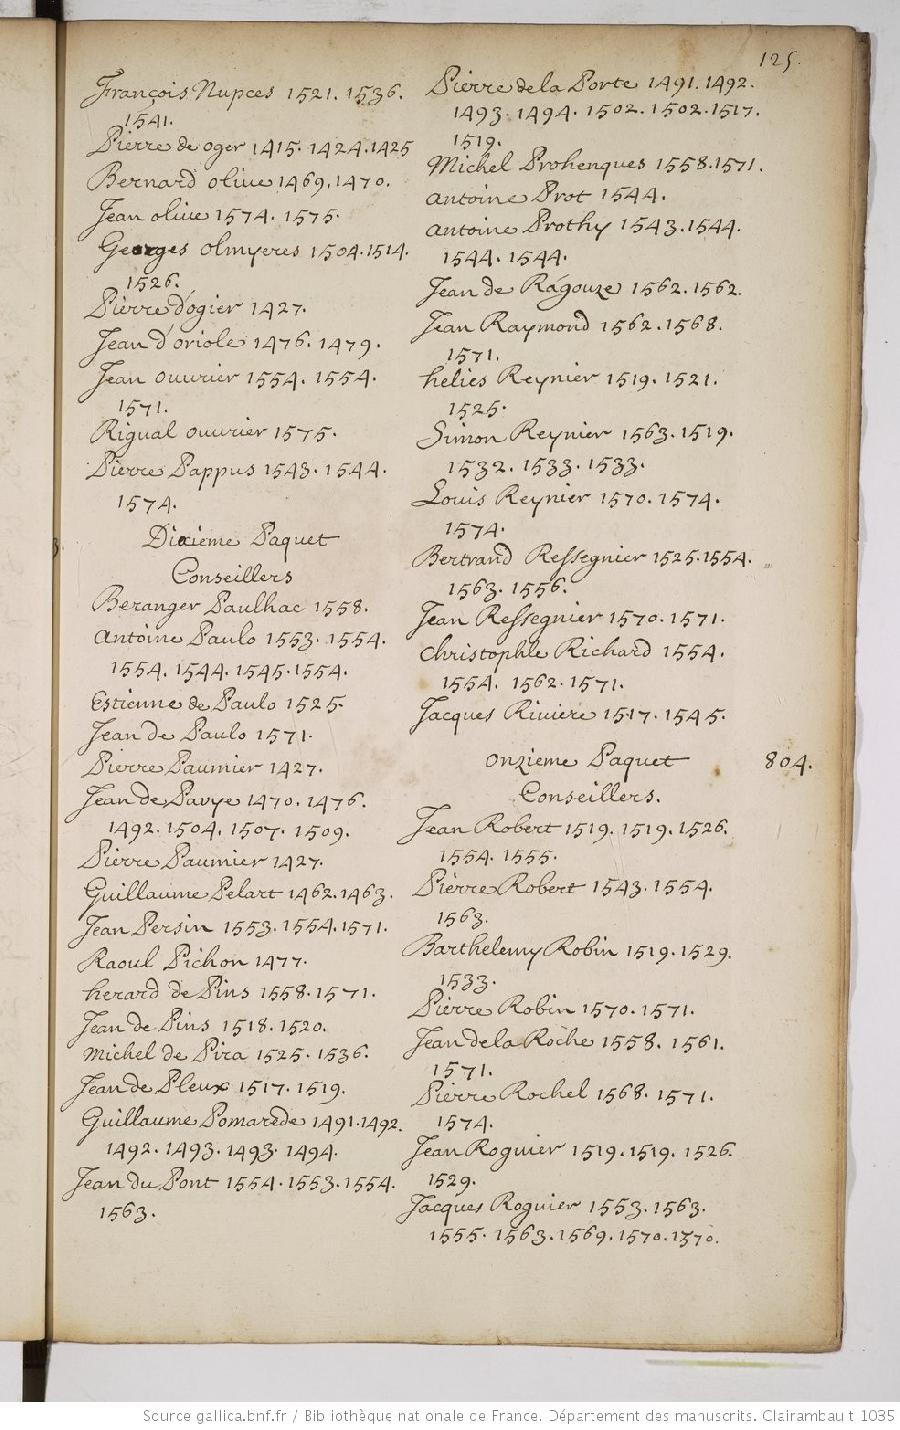 125.
François Nupces 1521. 1536.
1541.
Pierre de oger 1415. 1424. 1425
Bernard olive 1469. 1470.
Jean olive 1574. 1575.
Georges olmyeres 1504. 1514.
1526.
Pierre d'ogier 1427.
Jean d'oriole 1476. 1479.
Jean ouvrier 1554. 1554.
1571.
Rigual ouvrier 1575.
Pierre Pappus 1543. 1544.
1574.
Dixieme Paquet
Conseillers
Beranger Paulhac 1558.
antoine Paulo 1553. 1554.
1554. 1544. 1545. 1554.
Estienne de Paulo 1525.
Jean de Paulo 1571.
Pierre Paumier 1427.
Jean de Pavye 1470. 1476.
1492. 1504. 1507. 1509.
Pierre Paumier 1427.
Guillaume Pelart 1462. 1463.
Jean Persin 1553. 1554. 1571.
Raoul Pichon 1477.
herard de Pins 1558. 1571.
Jean de Pins 1518. 1520.
Michel de Pira 1525. 1536.
Jean de Pleux 1517. 1519.
Guillaume Pomarede 1491. 1492.
1492. 1493. 1493. 1494.
Jean du Pont 1554. 1553. 1554.
1563.
Pierre de la Porte 1491. 1492.
1493. 1494. 1502. 1502. 1517.
1519.
Michel Prohenques 1558. 1571.
antoine Prot 1544.
antoine Prothy 1543. 1544.
1544. 1544.
Jean de Ragouze 1562. 1562.
Jean Raymond 1562. 1568.
1571.
helies Reynier 1519. 1521.
1525.
Simon Reynier 1563. 1519.
1532. 1533. 1533.
Louis Reynier 1570. 1574.
1574.
Bertrand Ressegnier 1525. 1554.
1563. 1556.
Jean Ressegnier 1570. 1571.
Christophle Richard 1554.
1554. 1562. 1571.
Jacques Riviere 1517. 1545.
onzieme Paquet 804.
Conseillers.
Jean Robert 1519. 1519. 1526.
1554. 1555.
Pierre Robert 1543. 1554.
1563.
Barthelemy Robin 1519. 1529.
1533.
Pierre Robin 1570. 1571.
Jean de la Roche 1558. 1561.
1571.
Pierre Rochel 1568. 1571.
1574.
Jean Roguier 1519. 1519. 1526.
1529.
Jacques Roguier 1553. 1563.
1555. 1563. 1569. 1570. 1570.
Source gallica.bnf.fr / Bibliothèque nationale de France. Département des manuscrits. Clairambault 1035